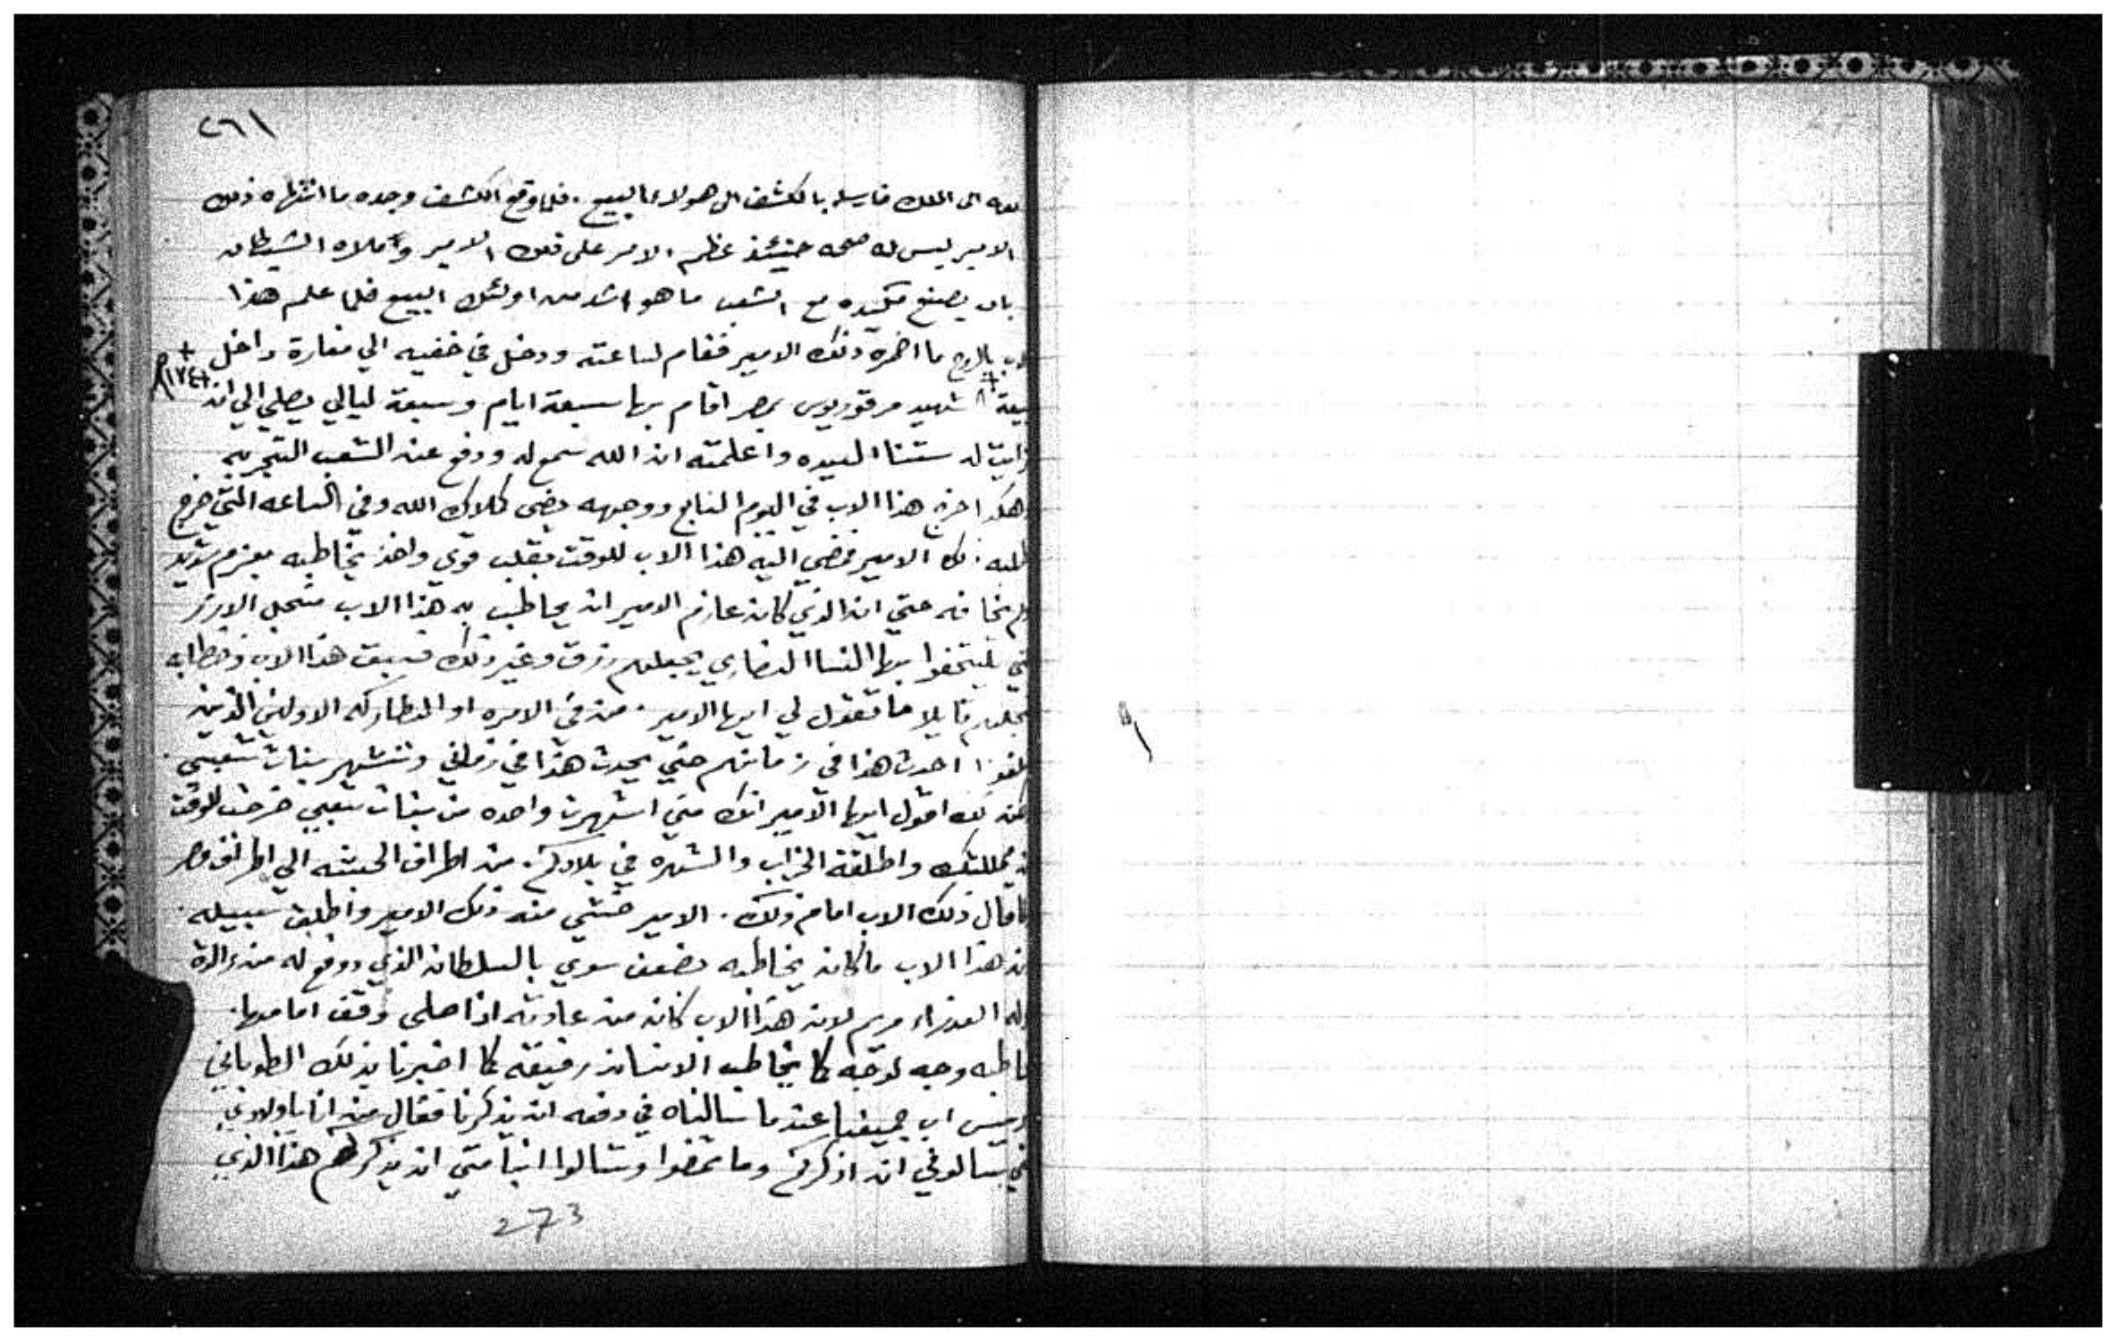 ٢٦١
الى الملك فارسل بالكشف الى هولاء البيع . فلما وقع الكشف وجده ما انتهاه ذلك
الامير ليس له صحه حينئذ عظم الامر على ذلك الامير واملاه الشيطان
بان يصنع مكيده مع الشعب ما هو اشد من اوليك البيع فلما علم هذا
الاب بالروح ما اضمره ذلك الامير فقام لساعته ودخل في خفيه الي مغارة داخل
بيعة الشهيد مرقوريوس بمصر اقام بها سبعة ايام وسبعة ليالي يصلي الي ان
+ ١٧٤
له ستنا السيده واعلمته ان الله سمع له ورفع عن الشعب التجربه
هكذا خرج هذا الاب في اليوم السابع ووجهه يضى كملاك الله وفي الساعه التي خرج
طلبه ذلك الامير فمضي اليه هذا الاب للوقت بقلب قوي واخذ يخاطبه بعزم شديد
ولم يخافه حتي ان الذي كان عازم الامير ان يخاطب به هذا الاب من اجل الازر
التي يلتحفوا بها النسا النصاري يجعلهم زرق وغير ذلك فسبق هذا الاب وخطابه
قايلا ما تقول لي ايها الامير . من في الامره او البطاركه الاولين الذين
احدث هذا في زمانهم حتي يحدث هذا في زماني وتشتهر بنات شعبي .
لكن لك اقول ايها الامير انك متي اشهرت واحده من بنات شعبي خرجت للوقت
من مملكتك واطلقة الخراب والشهره في بلادكم . من اطراف الحبشه الي اطراف مصر
فلما قال ذلك الاب امام ذلك . الامير خشي منه ذلك الامير واطلق سبيله .
لان هذا الاب ما كان يخاطبه بضعف سوي بالسلطان الذي دوفع له من والدة
الاله العذراء مريم لان هذا الاب كان من عادته اذا صلى وقف امامها .
تخاطبه وجه لوجه كما يخاطب الانسان رفيقه كما اخبرنا بذلك الطوباني
اب جميعنا عندما سالناه في دفعه ان يذكرنا فقال من انا يا ولادي
حتي تسالوني ان اذكركم وما تمضوا وتسالوا انبا متي ان يذكركم هذا الذي
273